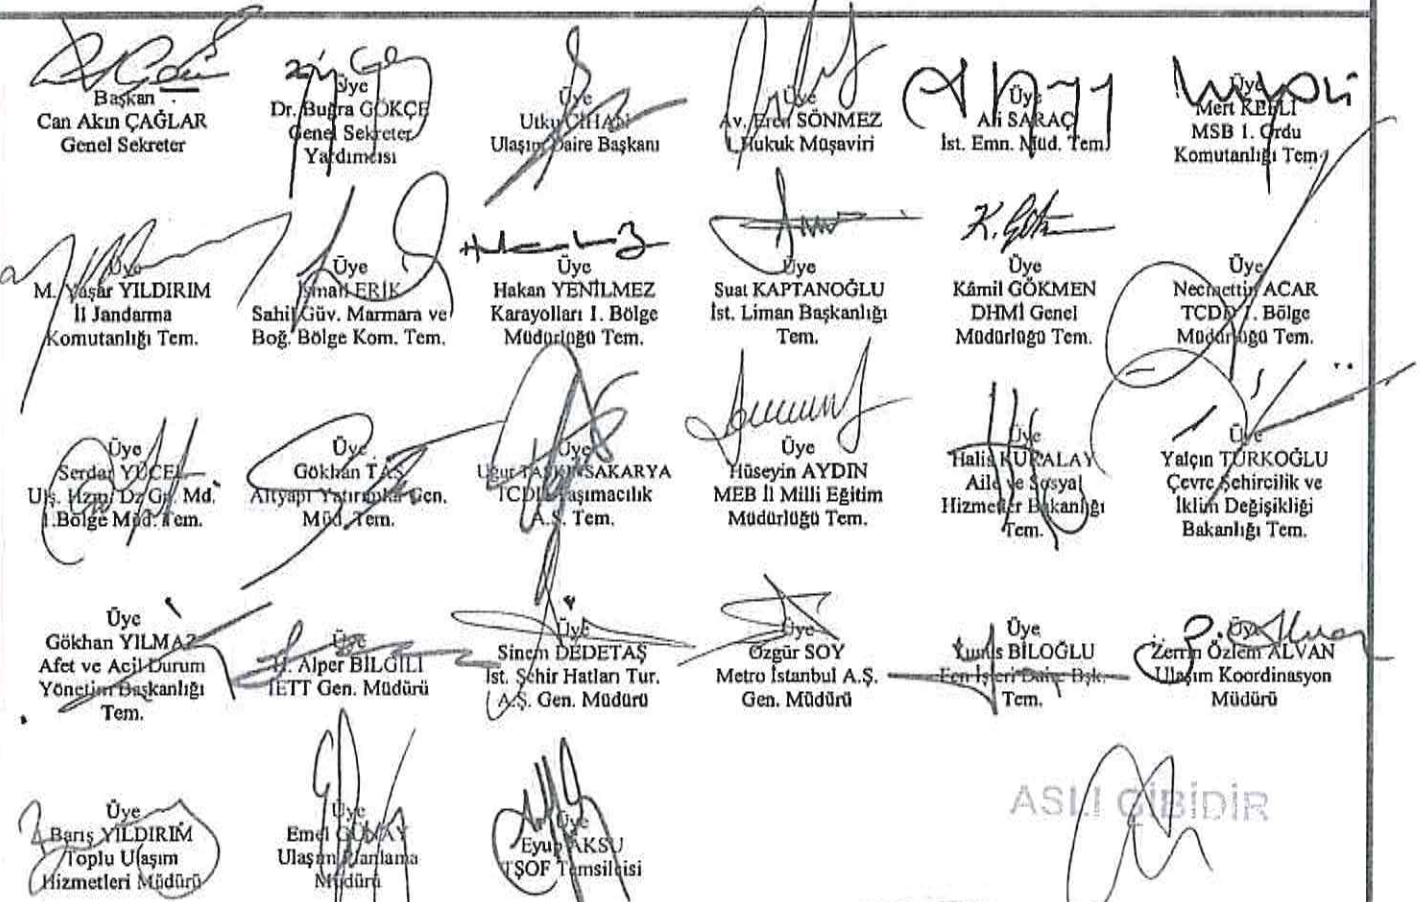 Başkan
Can Akın ÇAĞLAR
Genel Sekreter
Üye
Dr. Buğra GÖKÇE
Genel Sekreter
Yardımcısı
Üye
Utku CİHAN
Ulaşım Daire Başkanı
Üye
Av. Eren SÖNMEZ
I.Hukuk Müşaviri
Üye
Ali SARAÇ
İst. Emn. Müd. Tem.
Üye
Mert
MSB 1. Ordu
Komutanlığı Tem.
Üye
M. Yaşar YILDIRIM
İl Jandarma
Komutanlığı Tem.
Üye
İsmail ERİK
Sahil Güv. Marmara ve
Boğ. Bölge Kom. Tem.
Üye
Hakan YENİLMEZ
Karayolları 1. Bölge
Müdürlüğü Tem.
Üye
Suat KAPTANOĞLU
İst. Liman Başkanlığı
Tem.
K.
Üye
Kâmil GÖKMEN
DHMİ Genel
Müdürlüğü Tem.
Üye
Necmettin ACAR
TCDD 1. Bölge
Müdürlüğü Tem.
Üye
Serdar YÜCEL
Ulş. Hzm. Dz Gn. Md.
1.Bölge Müd. Tem.
Üye
Gökhan TAŞ
Altyapı Yatırımları Gen.
Müd. Tem.
Üye
Uğur SAKARYA
TCDD Taşımacılık
A.Ş. Tem.
Üye
Hüseyin AYDIN
MEB İl Milli Eğitim
Müdürlüğü Tem.
Üye
Halis
Aile ve Sosyal
Hizmetler Bakanlığı
Tem.
Üye
Yalçın TÜRKOĞLU
Çevre Şehircilik ve
İklim Değişikliği
Bakanlığı Tem.
Üye
Gökhan YILMAZ
Afet ve Acil Durum
Yönetim Başkanlığı
Tem.
Üye
Alper BİLGİLİ
İETT Gen. Müdürü
Üye
Sinem DEDETAŞ
İst. Şehir Hatları Tur.
A.Ş. Gen. Müdürü
Üye
Özgür SOY
Metro İstanbul A.Ş.
Gen. Müdürü
Üye
Yunus BİLOĞLU
Fen İşleri Daire Bşk.
Tem.
Üye
Zerrin Özlem ALVAN
Ulaşım Koordinasyon
Müdürü
Üye
Barış YILDIRIM
Toplu Ulaşım
Hizmetleri Müdürü
Üye
Emel GÜNAY
Ulaşım Planlama
Müdürü
Üye
Eyup AKSU
TŞOF Temsilcisi
ASLI GİBİDİR